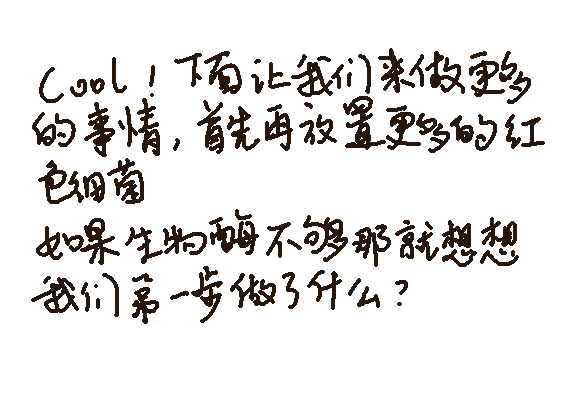 Cool！下面让我们来做更多
的事情，首先再放置更多的红
色细菌
如果生物酶不够那就想想
我们第一步做了什么？